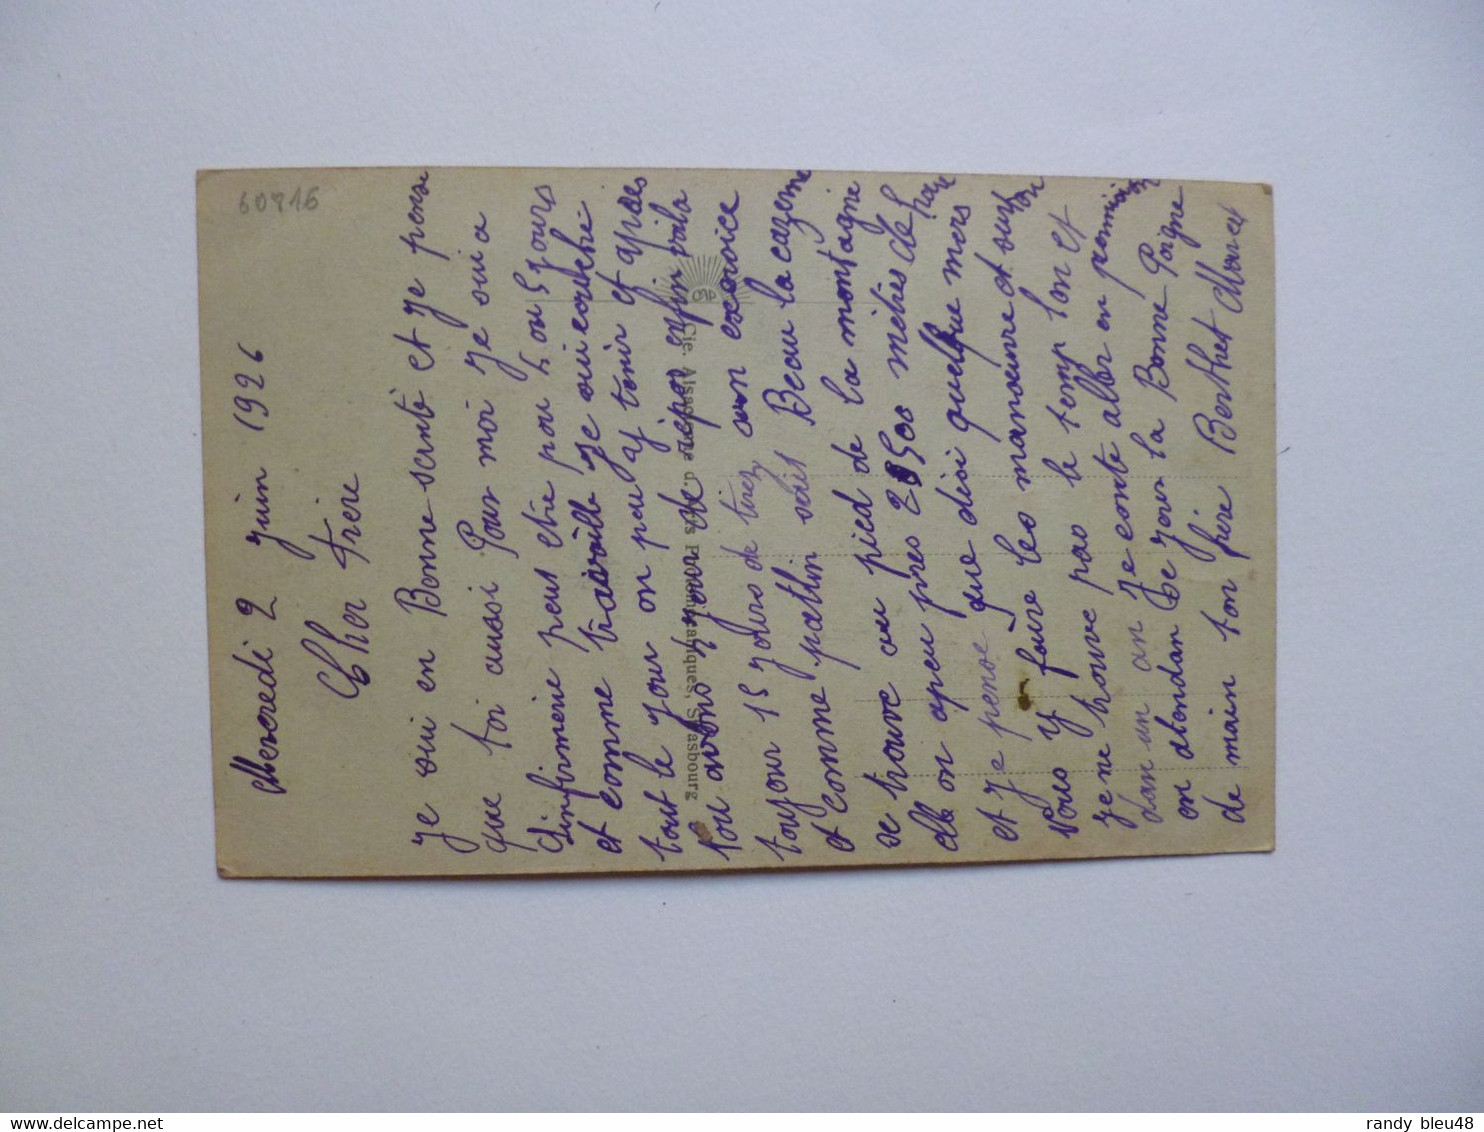 60816
Mercredi 2 Juin 1926
Cher Frère
Je sui en Bonne senté et Je pense
que toi aussi Pour moi Je sui a
linfirmerie peut etre pour 4 ou 5 jours
et comme travaille Je sui
tout le Jour on peu tenir et apres
tou avons Jour de repos enfin voila
toujour 15 Jours de tirez exercice
et comme patlin sait Beau la cazerne
se trouve au pied de la montagne
elle on apeu pres 2500 mètres de haut
et Je pense que disi quelque mois
vous y faire les manœuvre et surtou
Je ne trouve pas le temp lon et
dan un an Je conte aller en permission
en atendan Ce Jour la Bonne Poigne
de main ton frère Berthet Marcel
Cie. Alsacienne des Arts Photomécaniques, Strasbourg
delcampe.net
randy_bleu48